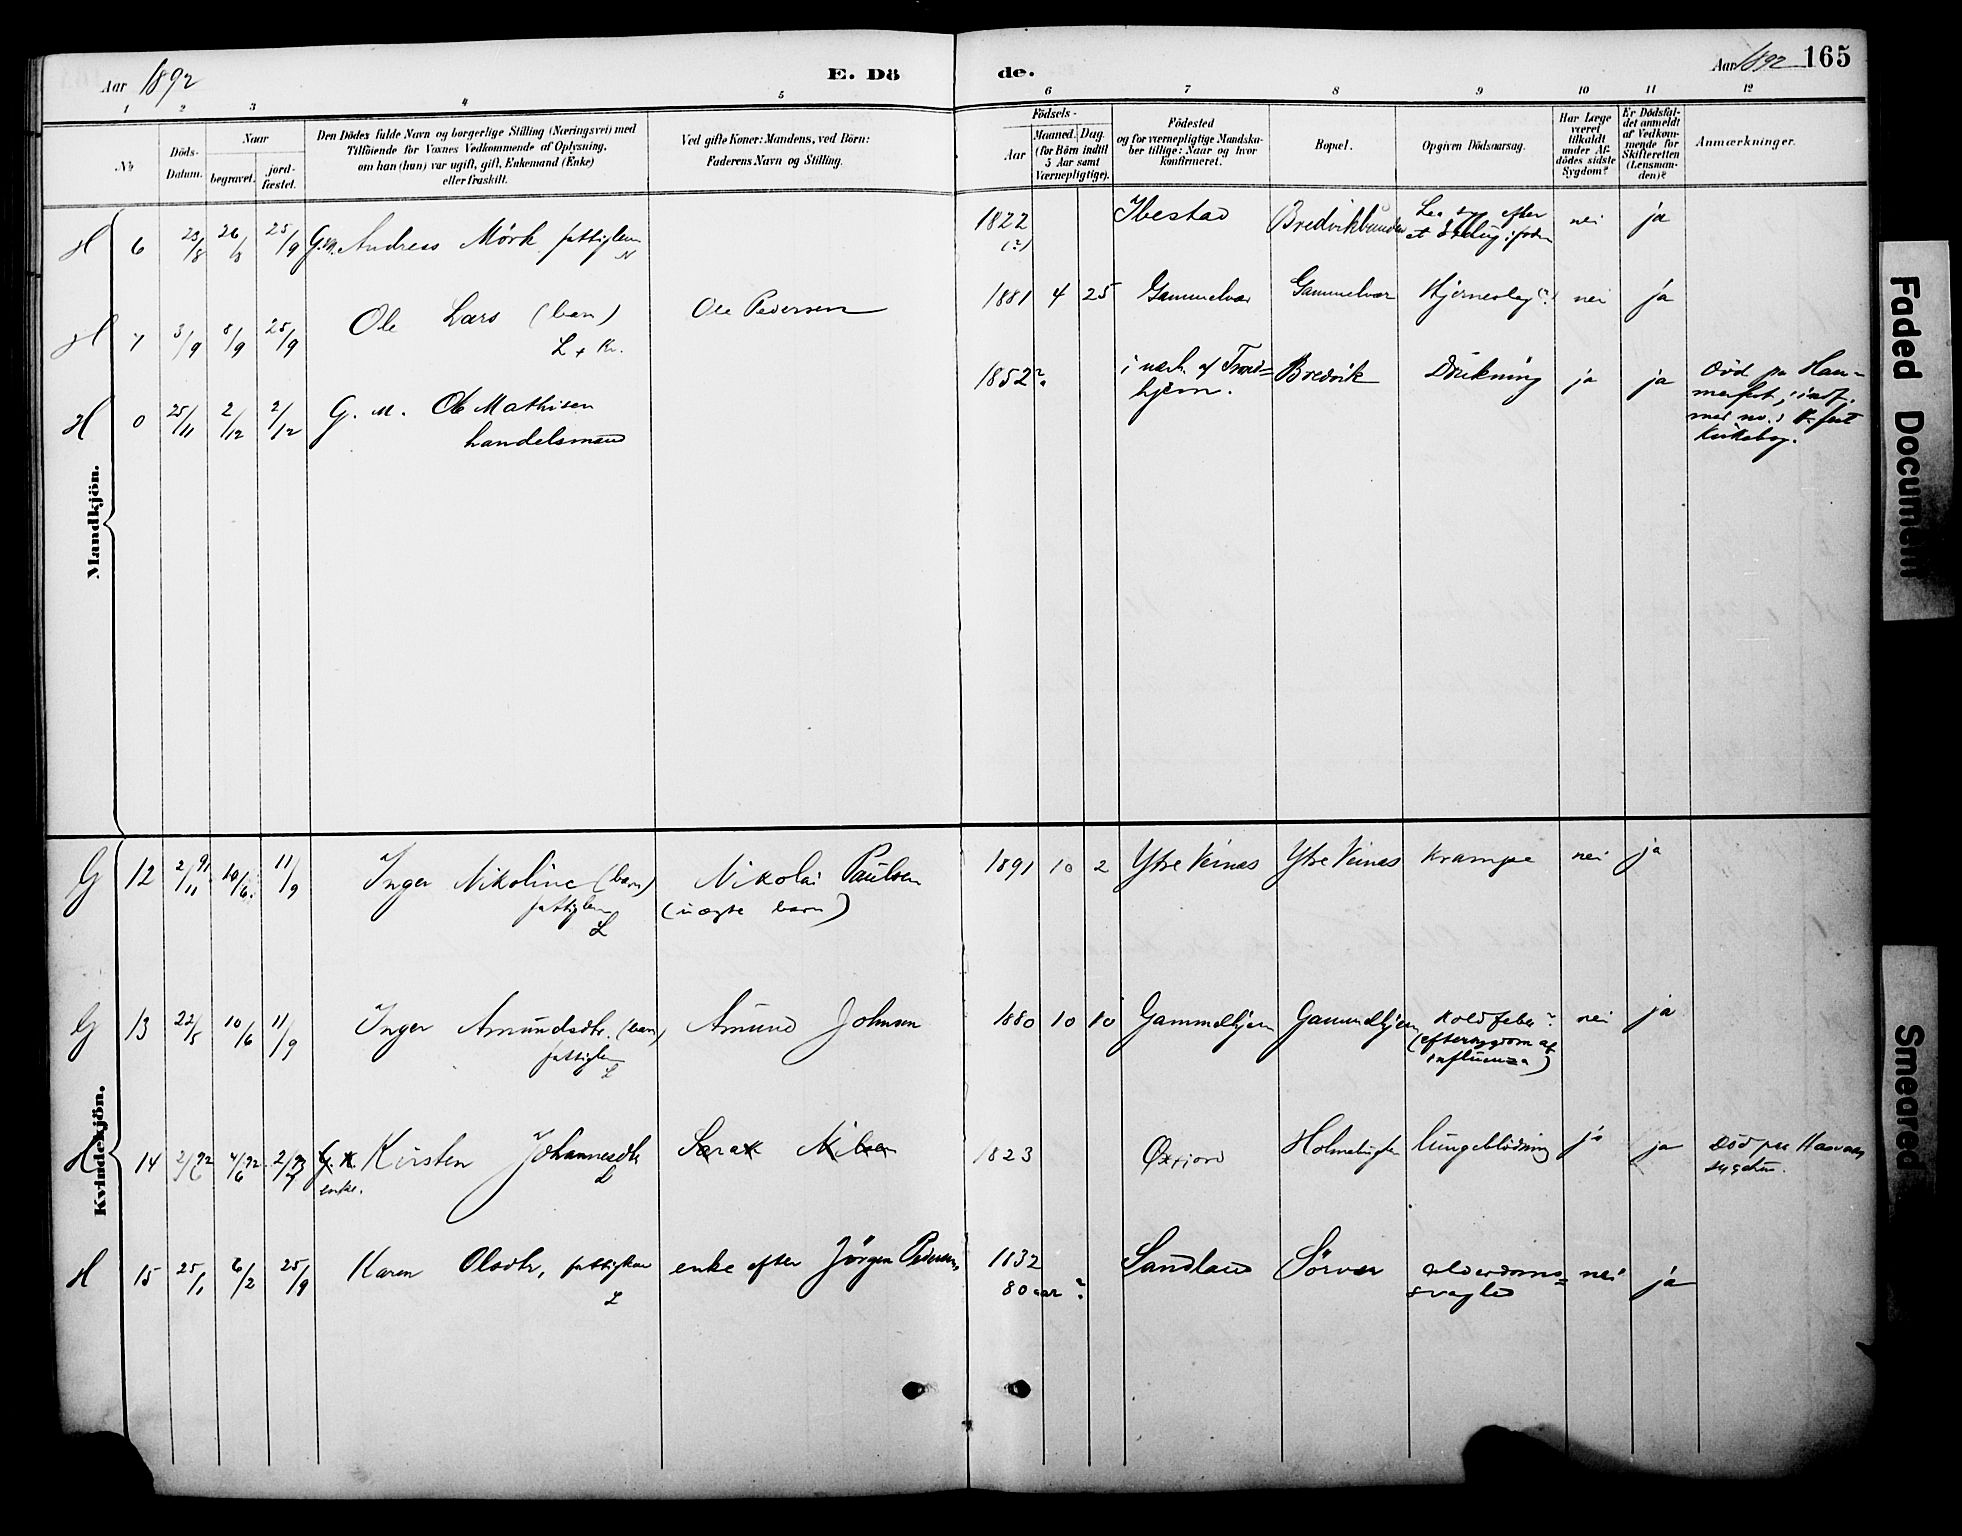 Aar 1892
E. Dö
de.
Aar 1892 165
1 2 3 4 5 6 7 8 9 10 11 12
No.
Döds-Datum.
Naar
begravet.
jord-fæstet.
Den Dödes fulde Navn og borgerlige Stilling (Næringsvei) med
Tilföiende for Voxnes Vedkommende af Oplysning,
om han (hun) var ugift, gift, Enkemand (Enke)
eller fraskilt.
Ved gifte Koner: Mandens, ved Börn:
Faderens Navn og Stilling.
Födsels-
Aar
Maaned. Dag.
(for Börn indtil
5 Aar samt
Værnepligtige).
Födested
og for værnepligtige Mandska-
ber tillige: Naar og hvor
konfirmeret.
Bopæl.
Opgiven Dödsaarsag.
Har Læge
været
tilkaldt
under Af-
dödes sidste
Sygdom?
Er Dödsfal-
det anmeldt
af Vedkom-
mende for
Skifteretten
(Lensman-
den)?
Anmærkninger.
Mandkjön.
H 6 23/8 26/8 25/9 G.M. Andreas Mörk fattiglem
N
1822 Ibestad efter nei ja
(?) et i foden
H 7 3/9 8/9 25/9 Ole Lars (barn) Ole Pedersen 1881 4 25 Gammelvær Gammelvær nei ja
L + Kv.
H 0 25/11 2/12 2/12 G. M. Ole Mathisen
handelsmand
1852? i nærh. af Trond=
hjem. Bredvik Drukning ja ja Död paa Ham-
merfest, indf.
med no. i H.fest
kirkebog.
Kvindekjön.
G 12 2/11 91 10/6 11/9 Inger Nikoline (barn) Nikolai Paulsen 1891 10 2 Ytre Veines Ytre Veines Krampe nei ja
fattiglem (uægte barn)
L
G 13 22/5 10/6 11/9 Inger Amundsdtr. (barn) Amund Johnsen 1880 10 10 Gammelhjem Gammelhjem Koldfeber? nei ja
fattiglem (eftersygdom af
L influenza)
H 14 G. K. Kirsten Johannesdtr Sara Nilsen 1823 Öxfjord lungeblödning ja ja Död paa Hasvaag
enke. L sygehus.
H 15 25/1 6/2 25/9 Karen Olsdtr, fattiglem enke efter Jörgen Pedersen 1832 Sandland Sörvær alderdoms= nei ja
L 80 aar? svaghed
Faded Document
Smeared